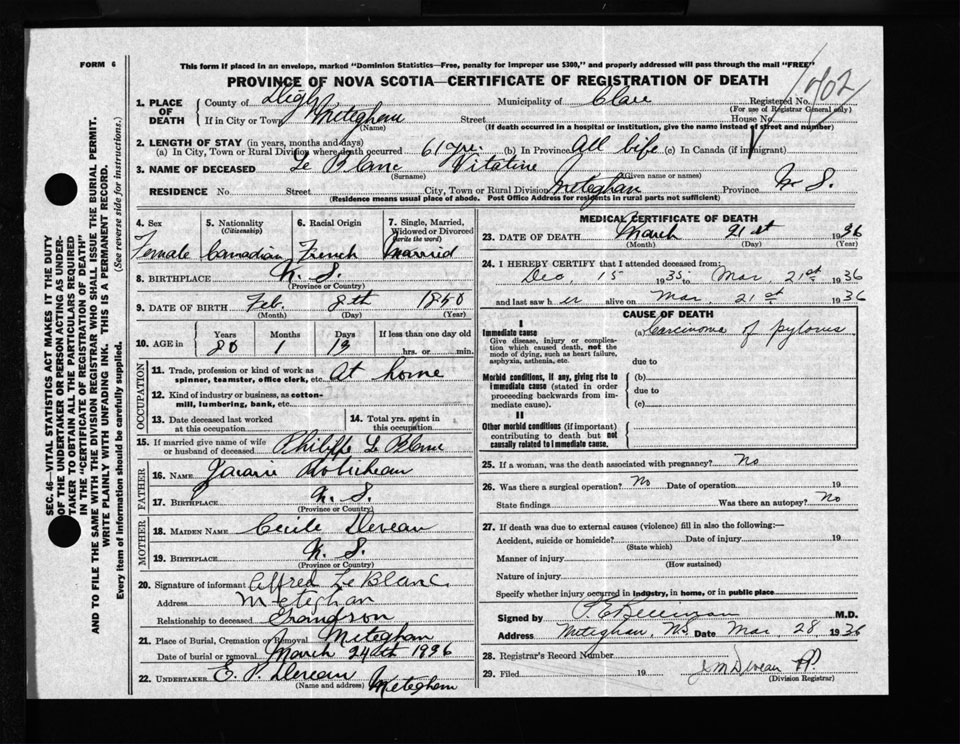 FORM 6
This form if placed in an envelope, marked "Dominion Statistics—Free, penalty for improper use $300," and properly addressed will pass through the mail "FREE"
PROVINCE OF NOVA SCOTIA—CERTIFICATE OF REGISTRATION OF DEATH
1. PLACE OF DEATH County of Digby Municipality of Clare Registered No. 702
(For use of Registrar General only)
If in City or Town Meteghan Street House No.
(Name) (If death occurred in a hospital or institution, give the name instead of street and number)
2. LENGTH OF STAY (in years, months and days)
(a) In City, Town or Rural Division where death occurred 61 yrs. (b) In Province All life (c) In Canada (if immigrant)
3. NAME OF DECEASED Le Blanc Vitaline
(Surname) (Given name or names)
RESIDENCE No. Street City, Town or Rural Division Meteghan Province N. S.
(Residence means usual place of abode. Post Office Address for residents in rural parts not sufficient)
4. Sex 5. Nationality (Citizenship) 6. Racial Origin 7. Single, Married, Widowed or Divorced (Write the word)
Female Canadian French Married
8. BIRTHPLACE N. S.
(Province or Country)
9. DATE OF BIRTH Feb. 8th 1850
(Month) (Day) (Year)
10. AGE in Years Months Days If less than one day old
86 1 13 hrs. or min.
OCCUPATION
11. Trade, profession or kind of work as spinner, teamster, office clerk, etc. At home
12. Kind of industry or business, as cotton-mill, lumbering, bank, etc.
13. Date deceased last worked at this occupation 14. Total yrs. spent in this occupation
15. If married give name of wife or husband of deceased Philippe Le Blanc
FATHER
16. NAME Robicheau
17. BIRTHPLACE N. S.
(Province or Country)
MOTHER
18. MAIDEN NAME Cecile Deveau
19. BIRTHPLACE N. S.
(Province or Country)
20. Signature of informant Alfred LeBlanc
Address Meteghan
Relationship to deceased Grandson
21. Place of Burial, Cremation or Removal Meteghan
Date of burial or removal March 24th 1936
22. UNDERTAKER E. P. Deveau Meteghan
(Name and address)
MEDICAL CERTIFICATE OF DEATH
23. DATE OF DEATH March 21st 1936
(Month) (Day) (Year)
24. I HEREBY CERTIFY that I attended deceased from:
Dec. 15 1935 to Mar. 21st 1936
and last saw her alive on Mar. 21st 1936
CAUSE OF DEATH
I
Immediate cause (a) Carcinoma of pylorus
Give disease, injury or complication which caused death, not the mode of dying, such as heart failure, asphyxia, asthenia, etc. due to
Morbid conditions, if any, giving rise to immediate cause (stated in order proceeding backwards from immediate cause). (b)
due to
(c)
II
Other morbid conditions (if important) contributing to death but not causally related to immediate cause.
25. If a woman, was the death associated with pregnancy? No
26. Was there a surgical operation? No Date of operation 19
State findings Was there an autopsy? No
27. If death was due to external causes (violence) fill in also the following:—
Accident, suicide or homicide? Date of injury 19
(State which)
Manner of injury
(How sustained)
Nature of injury
Specify whether injury occurred in industry, in home, or in public place
Signed by M.D.
Address Meteghan, N.S. Date Mar. 28 1936
28. Registrar's Record Number
29. Filed 19 Deveau
(Division Registrar)
SEC. 46—VITAL STATISTICS ACT MAKES IT THE DUTY
OF THE UNDERTAKER OR PERSON ACTING AS UNDER-
TAKER TO OBTAIN ALL THE PARTICULARS REQUIRED
IN THE "CERTIFICATE OF REGISTRATION OF DEATH"
AND TO FILE THE SAME WITH THE DIVISION REGISTRAR WHO SHALL ISSUE THE BURIAL PERMIT.
WRITE PLAINLY WITH UNFADING INK. THIS IS A PERMANENT RECORD.
Every item of information should be carefully supplied. (See reverse side for instructions.)